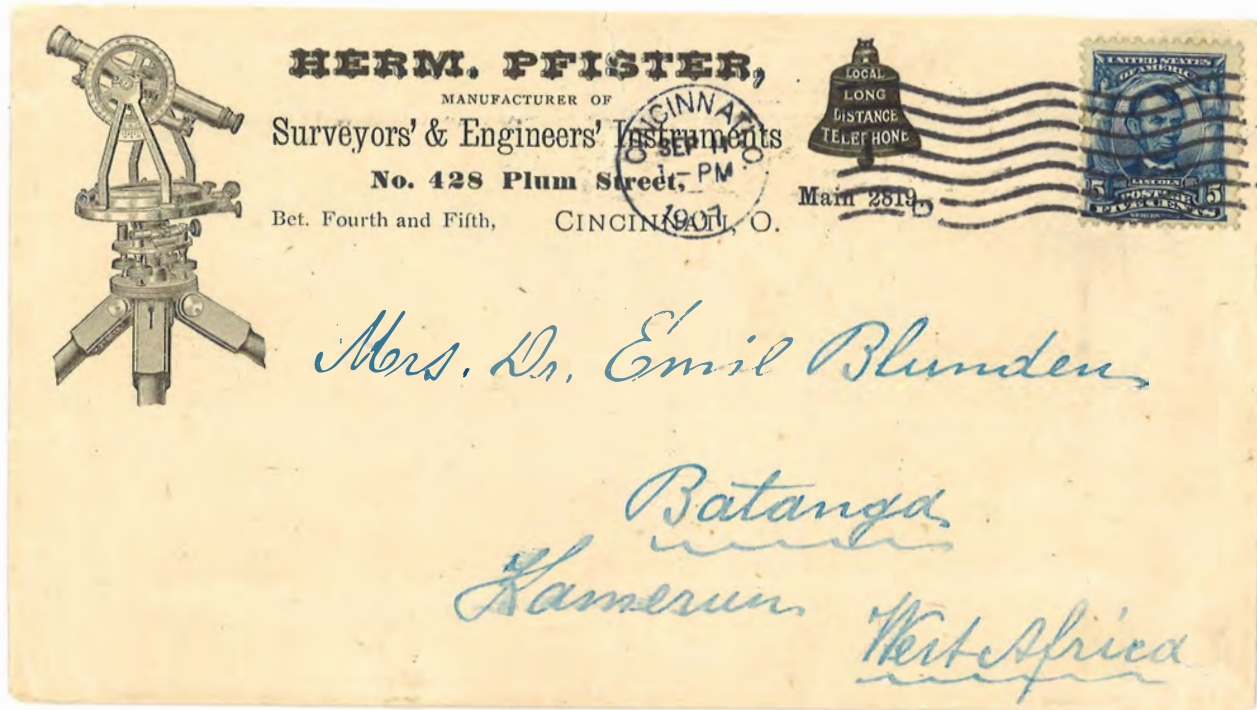 HERM. PFISTER,
MANUFACTURER OF
Surveyors' & Engineers' Instruments
No. 428 Plum Street,
Bet. Fourth and Fifth, CINCINNATI, O.
LOCAL
LONG
DISTANCE
TELEPHONE
Main 2819
CINCINNATI, O.
SEP 11
1 - PM
1907
UNITED STATES
OF AMERICA
LINCOLN
5 POSTAGE 5
FIVE CENTS
Mrs. Dr. Emil Blunden
Batanga
Kamerun
West Africa